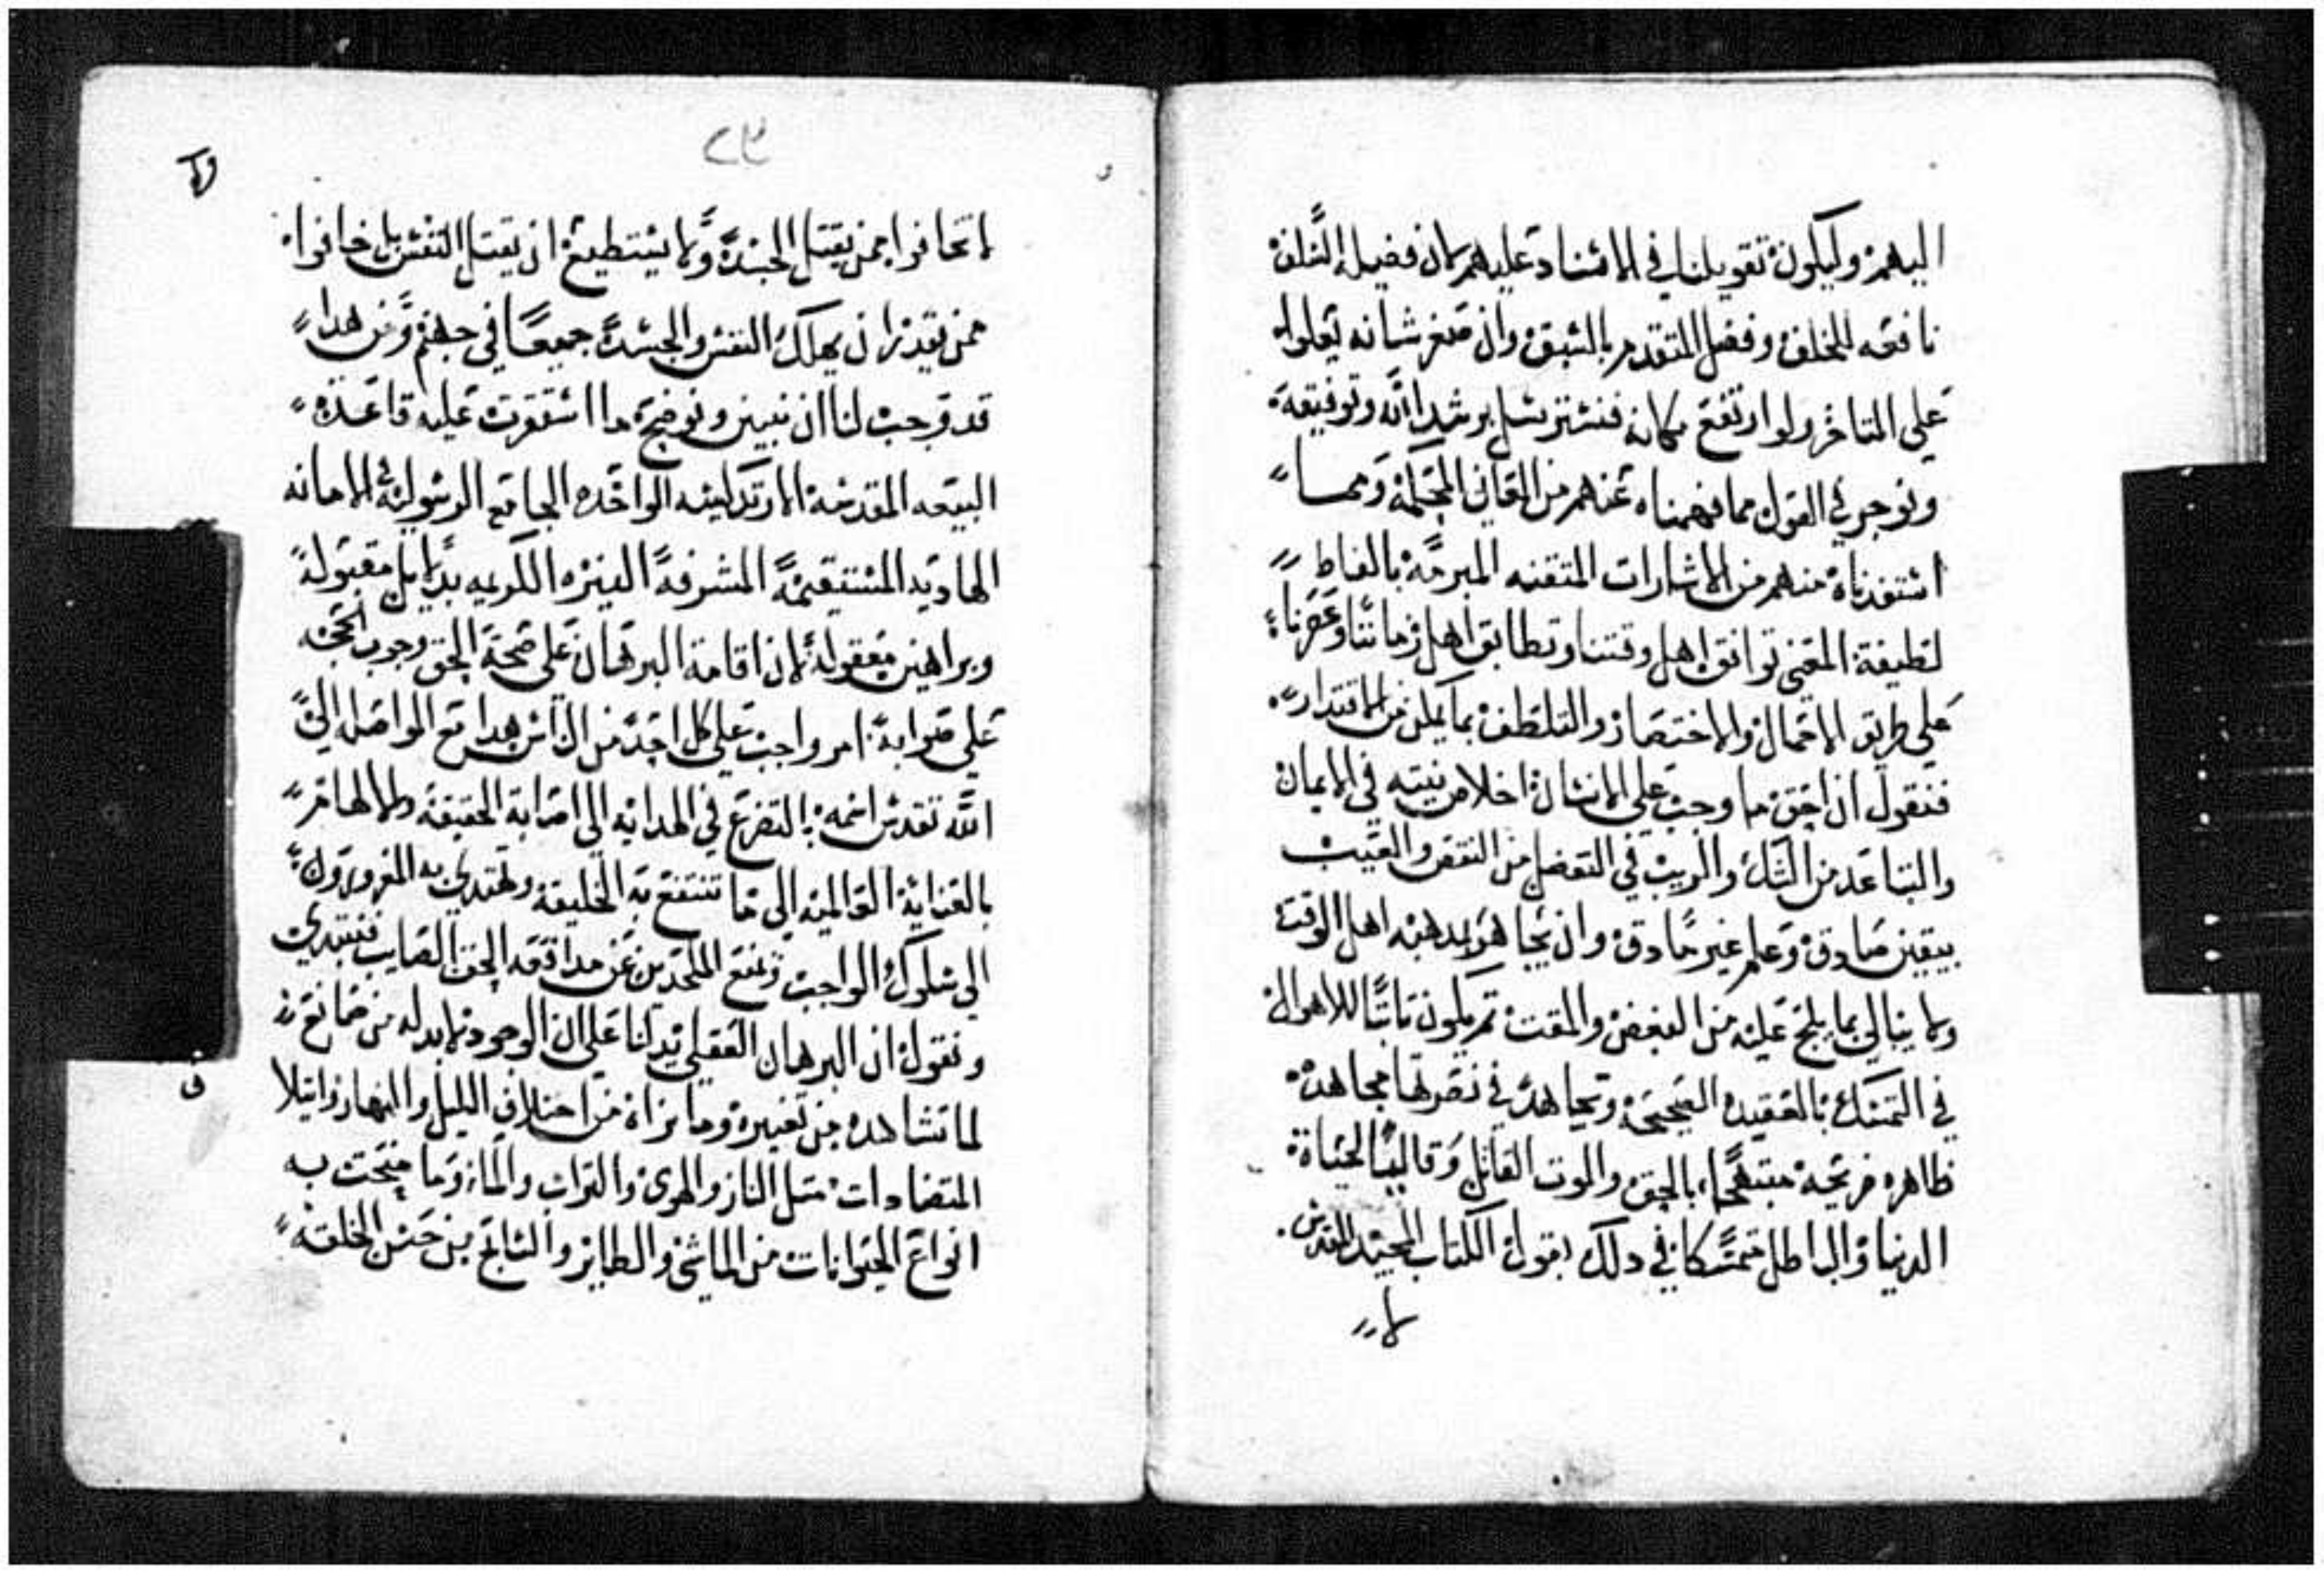 اليهم وليكون تعويلنا في الاسناد عليهم لان فضيلة السلف
نافعه للخلف وفضل المتقدم بالسبق وان صغر شانه يعلوا
علي المتاخر ولو ارتفع مكانه فنسترسل برشد الله وتوفيقه
ونوجز في القول مما فهمناه عنهم من المعاني المحكمة ومما
استفدناه منهم من الاشارات المتقنه المبرحة بالفاظ
لطيفة المعني توافق اهل وقتنا وتطابق اهل زماننا وعصرنا
علي طريق الاجمال والاختصار والتلطف بما يمكن من الاقتدار
فنقول ان احق ما وجب علي الانسان اخلاص نيته في الايمان
والتباعد من الشك والريب في التفضل من النقص والعيب
بيقين صادق وعلم غير حادق وان يجاهر بمدهبه اهل الوقت
ولا يبالي بما يلج عليه من البغض والمقت ثم يكون ثابتا للاهوال
في التمسك بالعقيده الصحيحة ويجاهد في نصرتها مجاهدة
ظاهره فريحه مبتهجا بالحق والموت القاتل وقاليا لحياة
الدنيا والباطل متمسكا في دلك بقول الكتاب المجيد المقدس
لا
٢٣
لا تخافوا ممن يقتل الجسد ولا يستطيع ان يقتل النفس بل خافوا
ممن يقدر ان يهلك النفس والجسد جميعا في جهنم ومن هدا
قد وجب لنا ان نبين ونوضح ما استقرت عليه قاعدة
البيعه المقدسة الارتدكسيه الواحده الجامع الرسولية الامانه
الهاديه المستقيمة المشرفة النيره الكريمه بدلايل مقبولة
وبراهين معقولة لان اقامة البرهان علي صحة الحق وجوب الحجه
علي صوابه امر واجب علي كل احد من الناس هدا مع المواصله الي
الله تقدس اسمه بالتضرع في الهدايه الي اصابة الحقيقة والالهام
بالعناية العالميه الي ما تنتفع به الخليقة وتهتدي به المغرورون
الي سلوك الواجب وتمنع الملحدين عن مدافعه الحق الصايب فنبتدي
ونقول ان البرهان العقلي يدلنا علي ان الوجود لابد له من صانع
لما نشاهده من تغييره وما نراه من اختلاف الليل والنهار وايتلا
المتضادات مثل النار والهوي والتراب والما وما منحت به
انواع الحيوانات من الماشي والطاير والسابح من حسن الخلقه